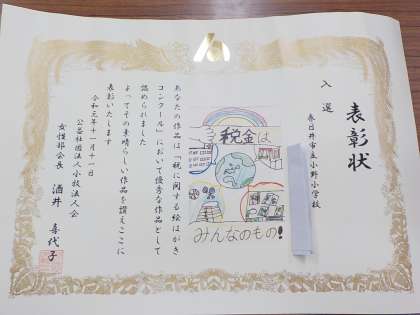 表彰状
入選
春日井市立小野小学校
税金は
みんなのもの!
あなたの作品は「税に関する絵はがき
コンクール」において優秀な作品として
認められました
よってその素晴らしい作品を讃えここに
表彰いたします
令和元年十一月十一日
公益社団法人小牧法人会
女性部会長 酒井 喜代子